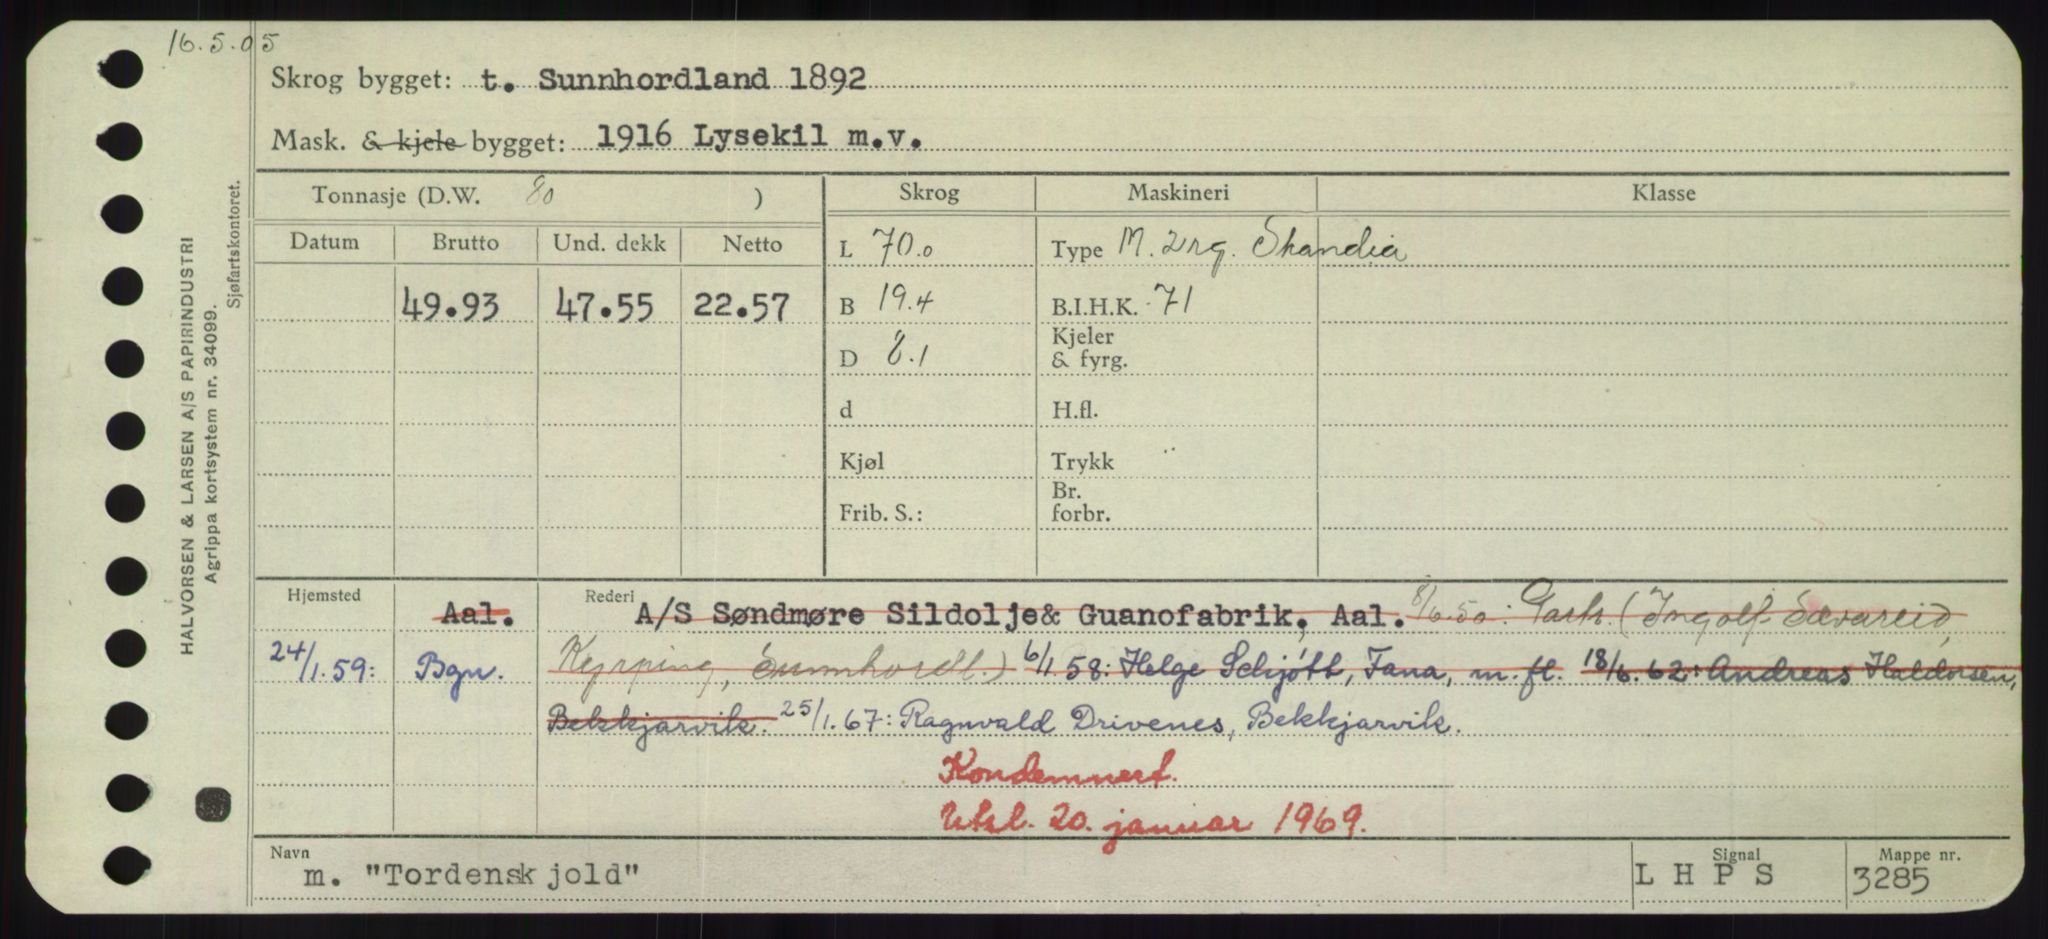 16.5.05
Skrog bygget: t. Sunnhordland 1892
Mask. & kjele bygget: 1916 Lysekil m.v.
Tonnasje (D.W. 80 ) Skrog Maskineri Klasse
Datum Brutto Und. dekk Netto L 70.0 Type M. 2 Skandia
49.93 47.55 22.57 B 19.4 B.I.H.K. 71
D 8.1 Kjeler & fyrg.
d H.fl.
Kjøl Trykk
Frib. S.: Br. forbr.
Hjemsted Aal. Rederi A/S Søndmøre Sildolje& Guanofabrik, Aal. 8/6.50: Partr. (Ingolf Sævareid,
24/1.59: Bgn. Kyrping, Sunnhordl.) 6/1 58: Helge Schjött, Fana, m. fl. 18/6.62: Andreas Haldorsen,
Bekkjarvik. 25/1.67: Ragnvald Drivenes, Bekkjarvik.
Kondemnert.
Utsl. 20. januar 1969.
Navn Signal Mappe nr.
m. "Tordenskjold" L H P S 3285
HALVORSEN & LARSEN A/S PAPIRINDUSTRI
Agrippa kortsystem nr. 34099.
Sjøfartskontoret.